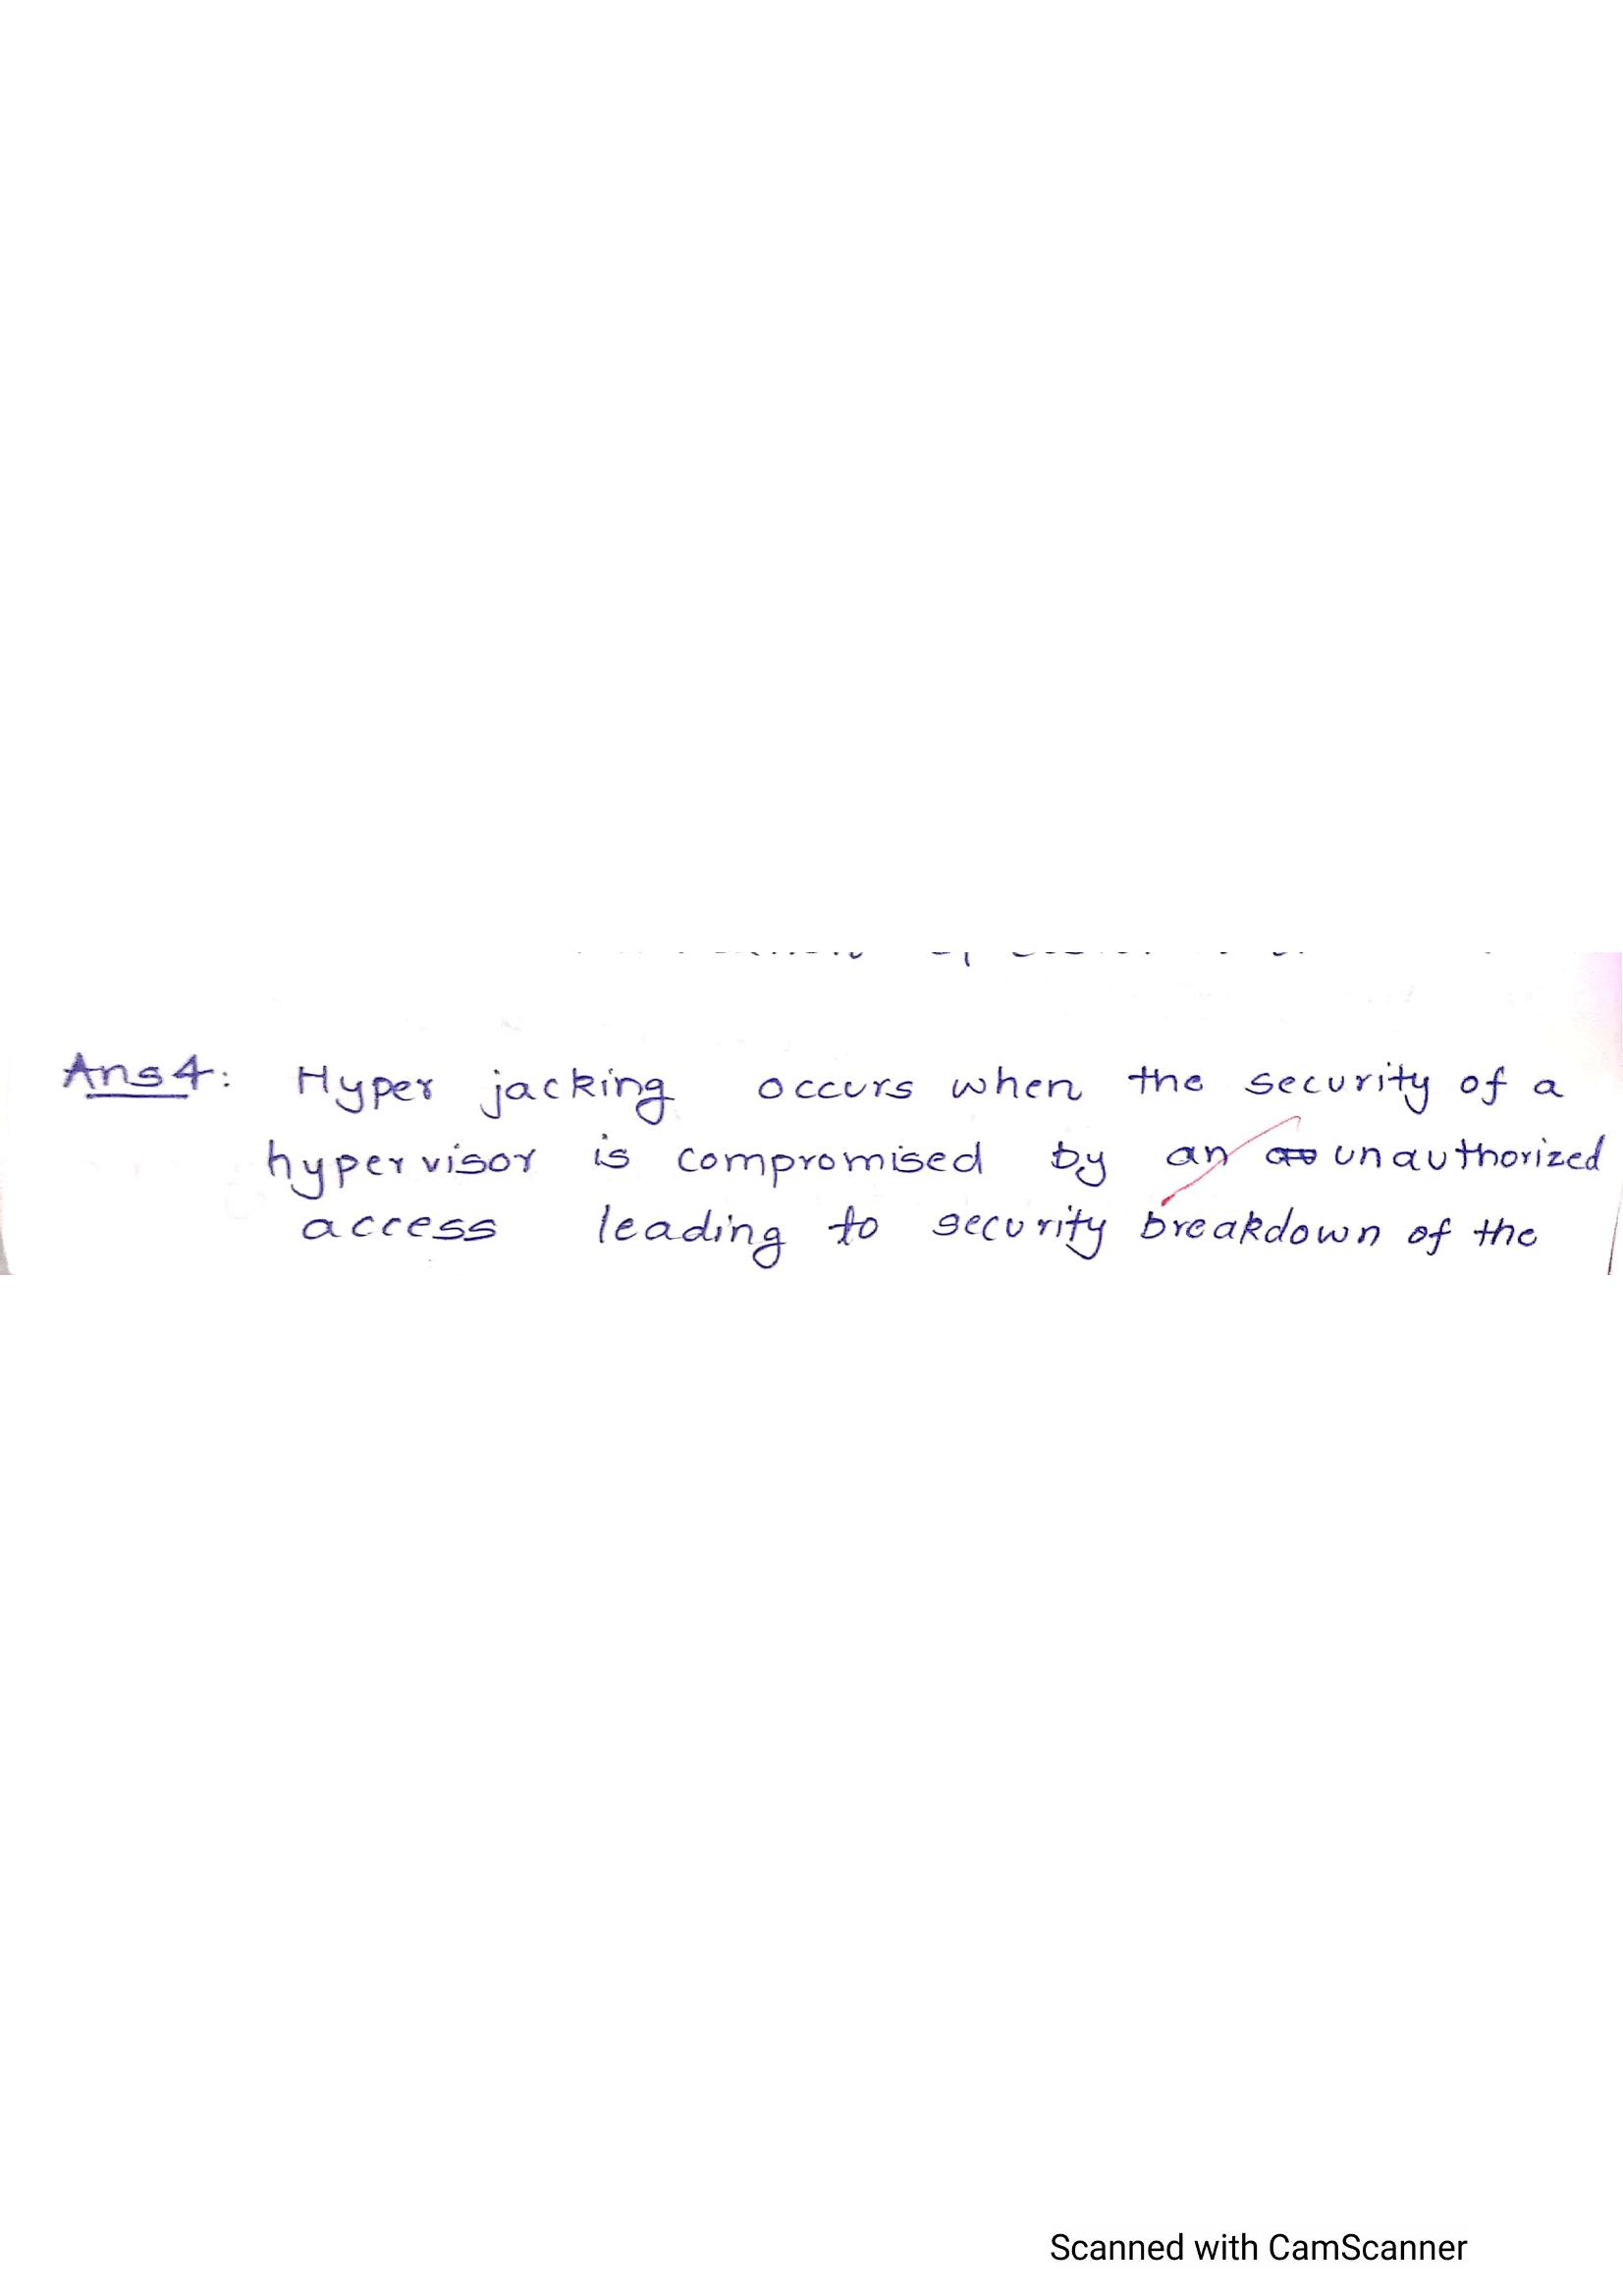 Ans4: Hyper jacking occurs when the security of a
hypervisor is compromised by an unauthorized
access leading to security breakdown of the
Scanned with CamScanner